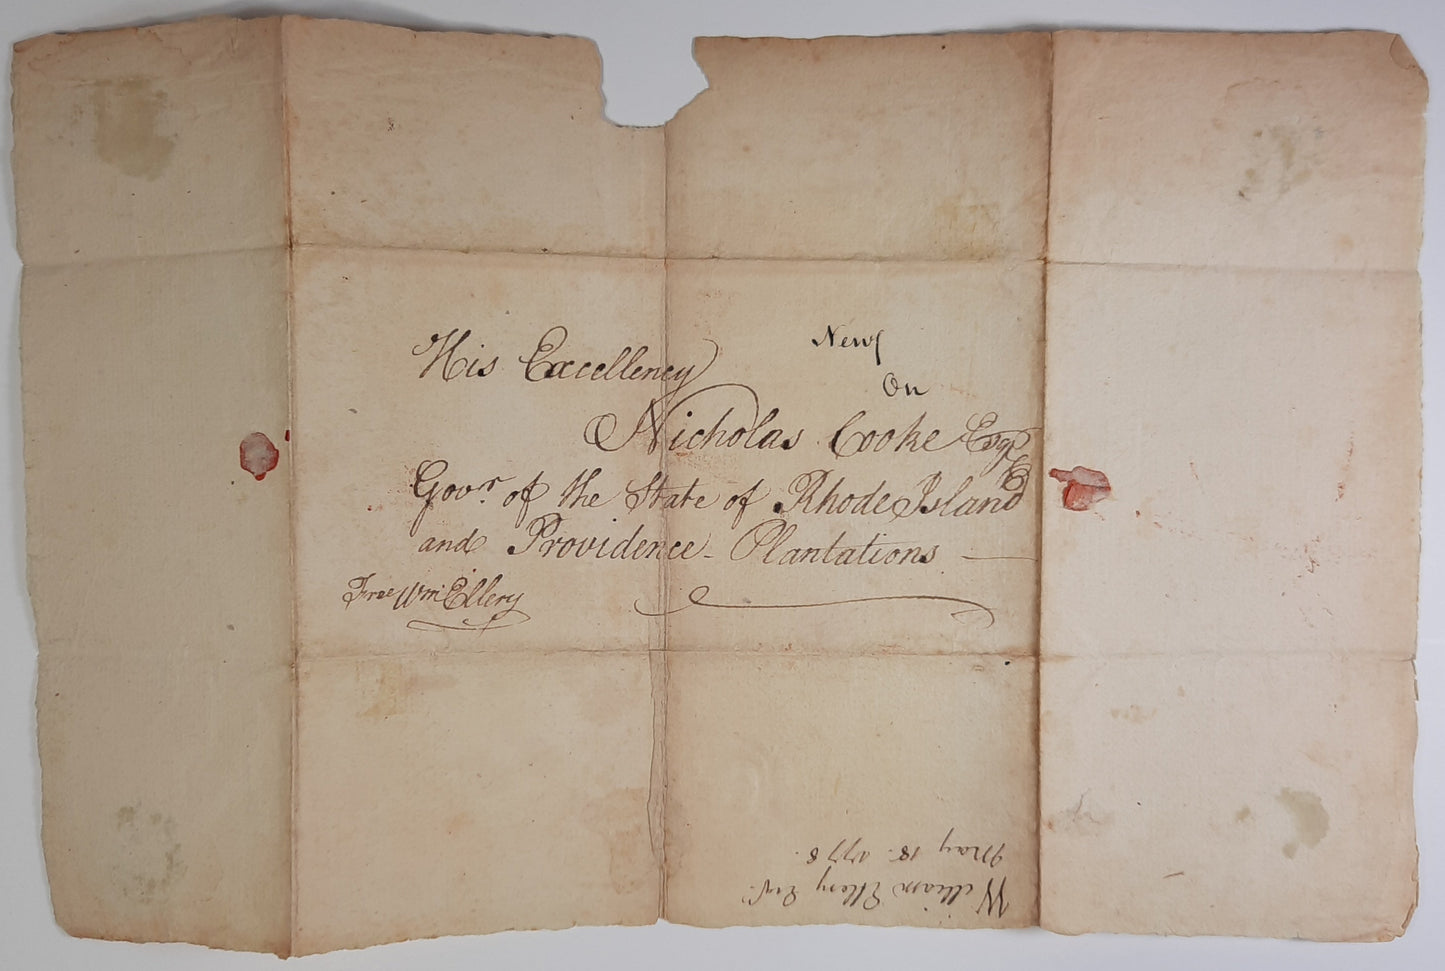 His Excellency
New
On
Nicholas Cooke Esqr
Govr. of the State of Rhode Island
and Providence - Plantations
Free Wm Ellery
William Ellery Esqr.
May 18. 1778.